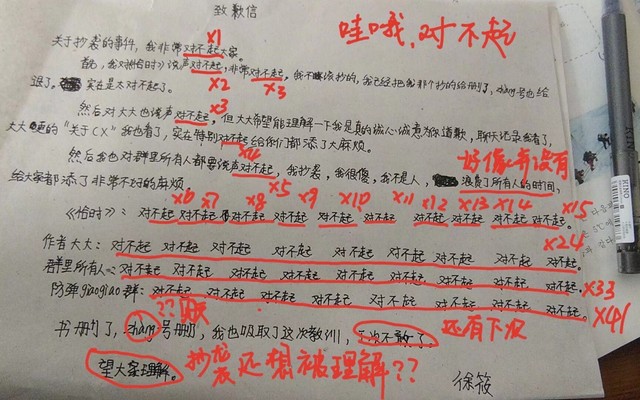 致歉信
哇哦,对不起
关于抄袭的事件,我非常对不起大家。
×1
首先,我对《恰时》说声对不起,非常对不起,我不应该抄的,我已经把我那个抄的给删了,zhang号也给
×2 ×3
退了。实在是太对不起了。
然后对大大也说声对不起,但大大希望能理解一下我是真的诚心诚意为你道歉,聊天记录我看了,
×3
大大 的“关于CX”我也看了,实在特别对不起给你们都添了大麻烦。
×4
然后我也对群里所有人都要说声对不起,我抄袭,我很傻,我不是人,浪费了所有人的时间,
好像并没有
给大家都添了非常不好的麻烦。
×5
×6 ×7 ×8 ×9 ×10 ×11 ×12 ×13 ×14 ×15
《恰时》:对不起 对不起 对不起 对不起 对不起 对不起 对不起 对不起 对不起 对不起.
×24
作者大大:对不起 对不起 对不起 对不起 对不起 对不起 对不起 对不起 对不起.
群里所有人:对不起 对不起 对不起 对不起 对不起 对不起 对不起 对不起 对不起.
×33
防弹jiaojiao群:对不起 对不起 对不起 对不起 对不起 对不起 对不起 对不起.
×41
??
还有下次
书删了,zhang号删了,我也吸取了这次教训,下次不敢了。
望大家理解。
抄袭还想被理解??
徐筱
KINO